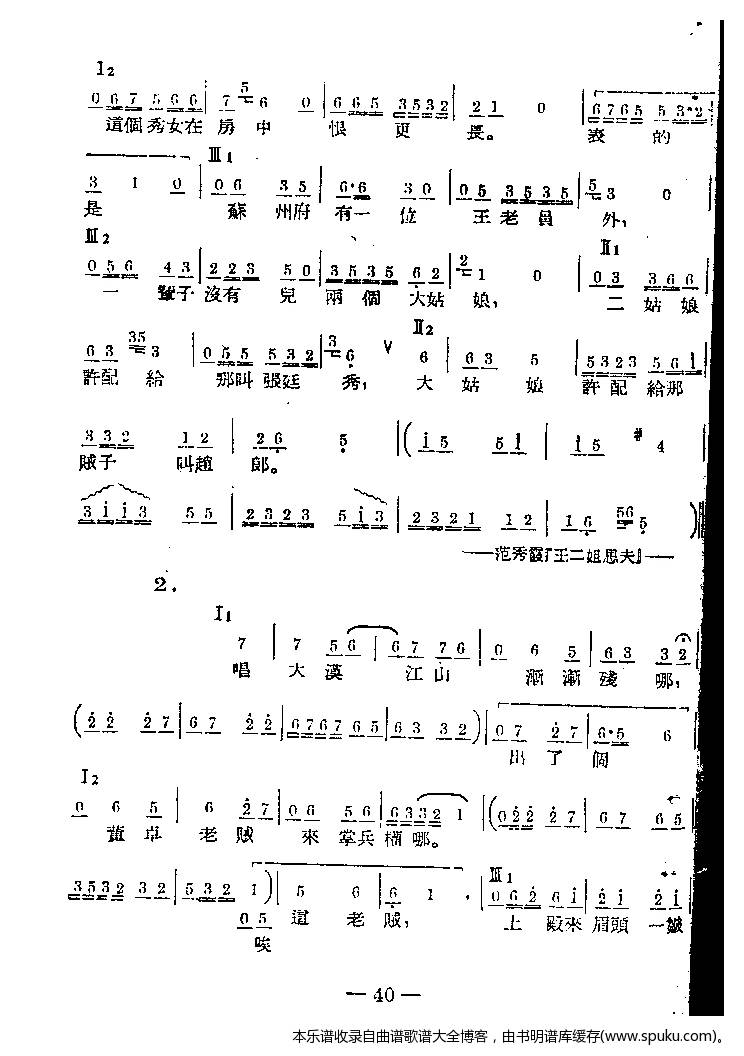 I₂
0 6 7 5 6 6 | 7 5 6 0 | 6 6 5 3 5 3 2 | 2 1 0 | 6 7 6 5 5 3 • 2
這個秀女在房中 恨更長。 表的
III₁
3 1 0 | 0 6 3 5 | 6 • 6 3 0 | 0 5 3 5 3 5 | 5 3 0
是 蘇州府有一位 王老員外,
III₂ II₁
0 5 6 4 3 | 2 2 3 5 0 | 3 5 3 5 6 2 | 2 1 0 | 0 3 3 6 6
一輩子沒有兒兩個大姑娘, 二姑娘
II₂
6 3 3 5 3 | 0 5 5 5 3 2 | 3 6 V 6 | 6 3 5 | 5 3 2 3 5 6 1
許配給 那叫張廷秀, 大姑娘許配給那
3 3 2 1 2 | 2 6 5 | ( 1 5 5 1 | 1 5 #4
賊子叫趙郎。
3 i i 3 5 5 | 2 3 2 3 5 i 3 | 2 3 2 1 1 2 | 1 6 5 6 5 )
——范秀霞『王二姐思夫』——
2.
I₁
7 | 7 5 6 | 6 7 7 6 | 0 6 5 | 6 3 3 2
唱大漢江山 漸漸殘哪,
( 2 2 2 7 | 6 7 2 2 | 6 7 6 7 6 5 | 6 3 3 2 ) | 0 7 2 7 | 6 • 5 6
出了個
I₂
0 6 5 | 6 2 7 | 0 6 5 6 | 6 3 3 2 1 | ( 0 2 2 2 7 | 6 7 6 5
董卓老賊來掌兵權哪。
III₁
3 5 3 2 3 2 | 5 3 2 1 ) | 5 6 | 6 1 , | 0 6 2 6 i | 2 i 2 i
0 5 這老賊, 上殿來眉頭一皺
唉
— 40 —
本乐谱收录自曲谱歌谱大全博客，由书明谱库缓存(www.spuku.com)。